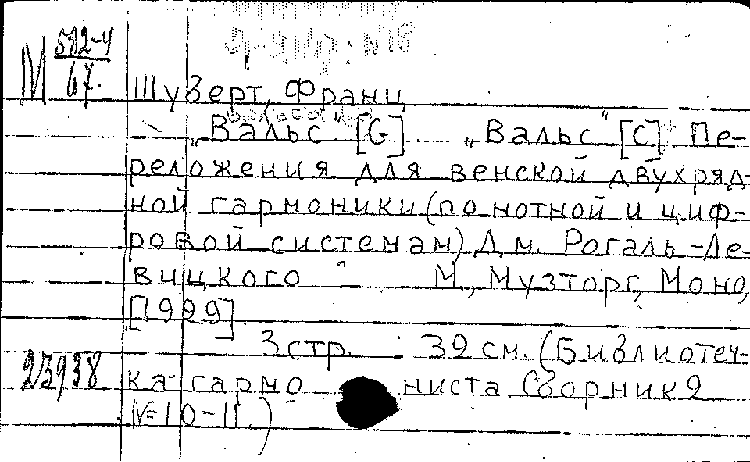 М 592-4
67.
Шуберт, Франц
„Вальс" [G] „Вальс" [C] Пе-
реложения для венской двухряд-
ной гармоники (по нотной и циф-
ровой системам) Дм. Рогаль-Ле-
вицкого М., Музторг, Моно,
[1929]
3 стр. 39 см. (Библиотеч-
23938 ка гармониста Сборник 2
№ 10-11.)